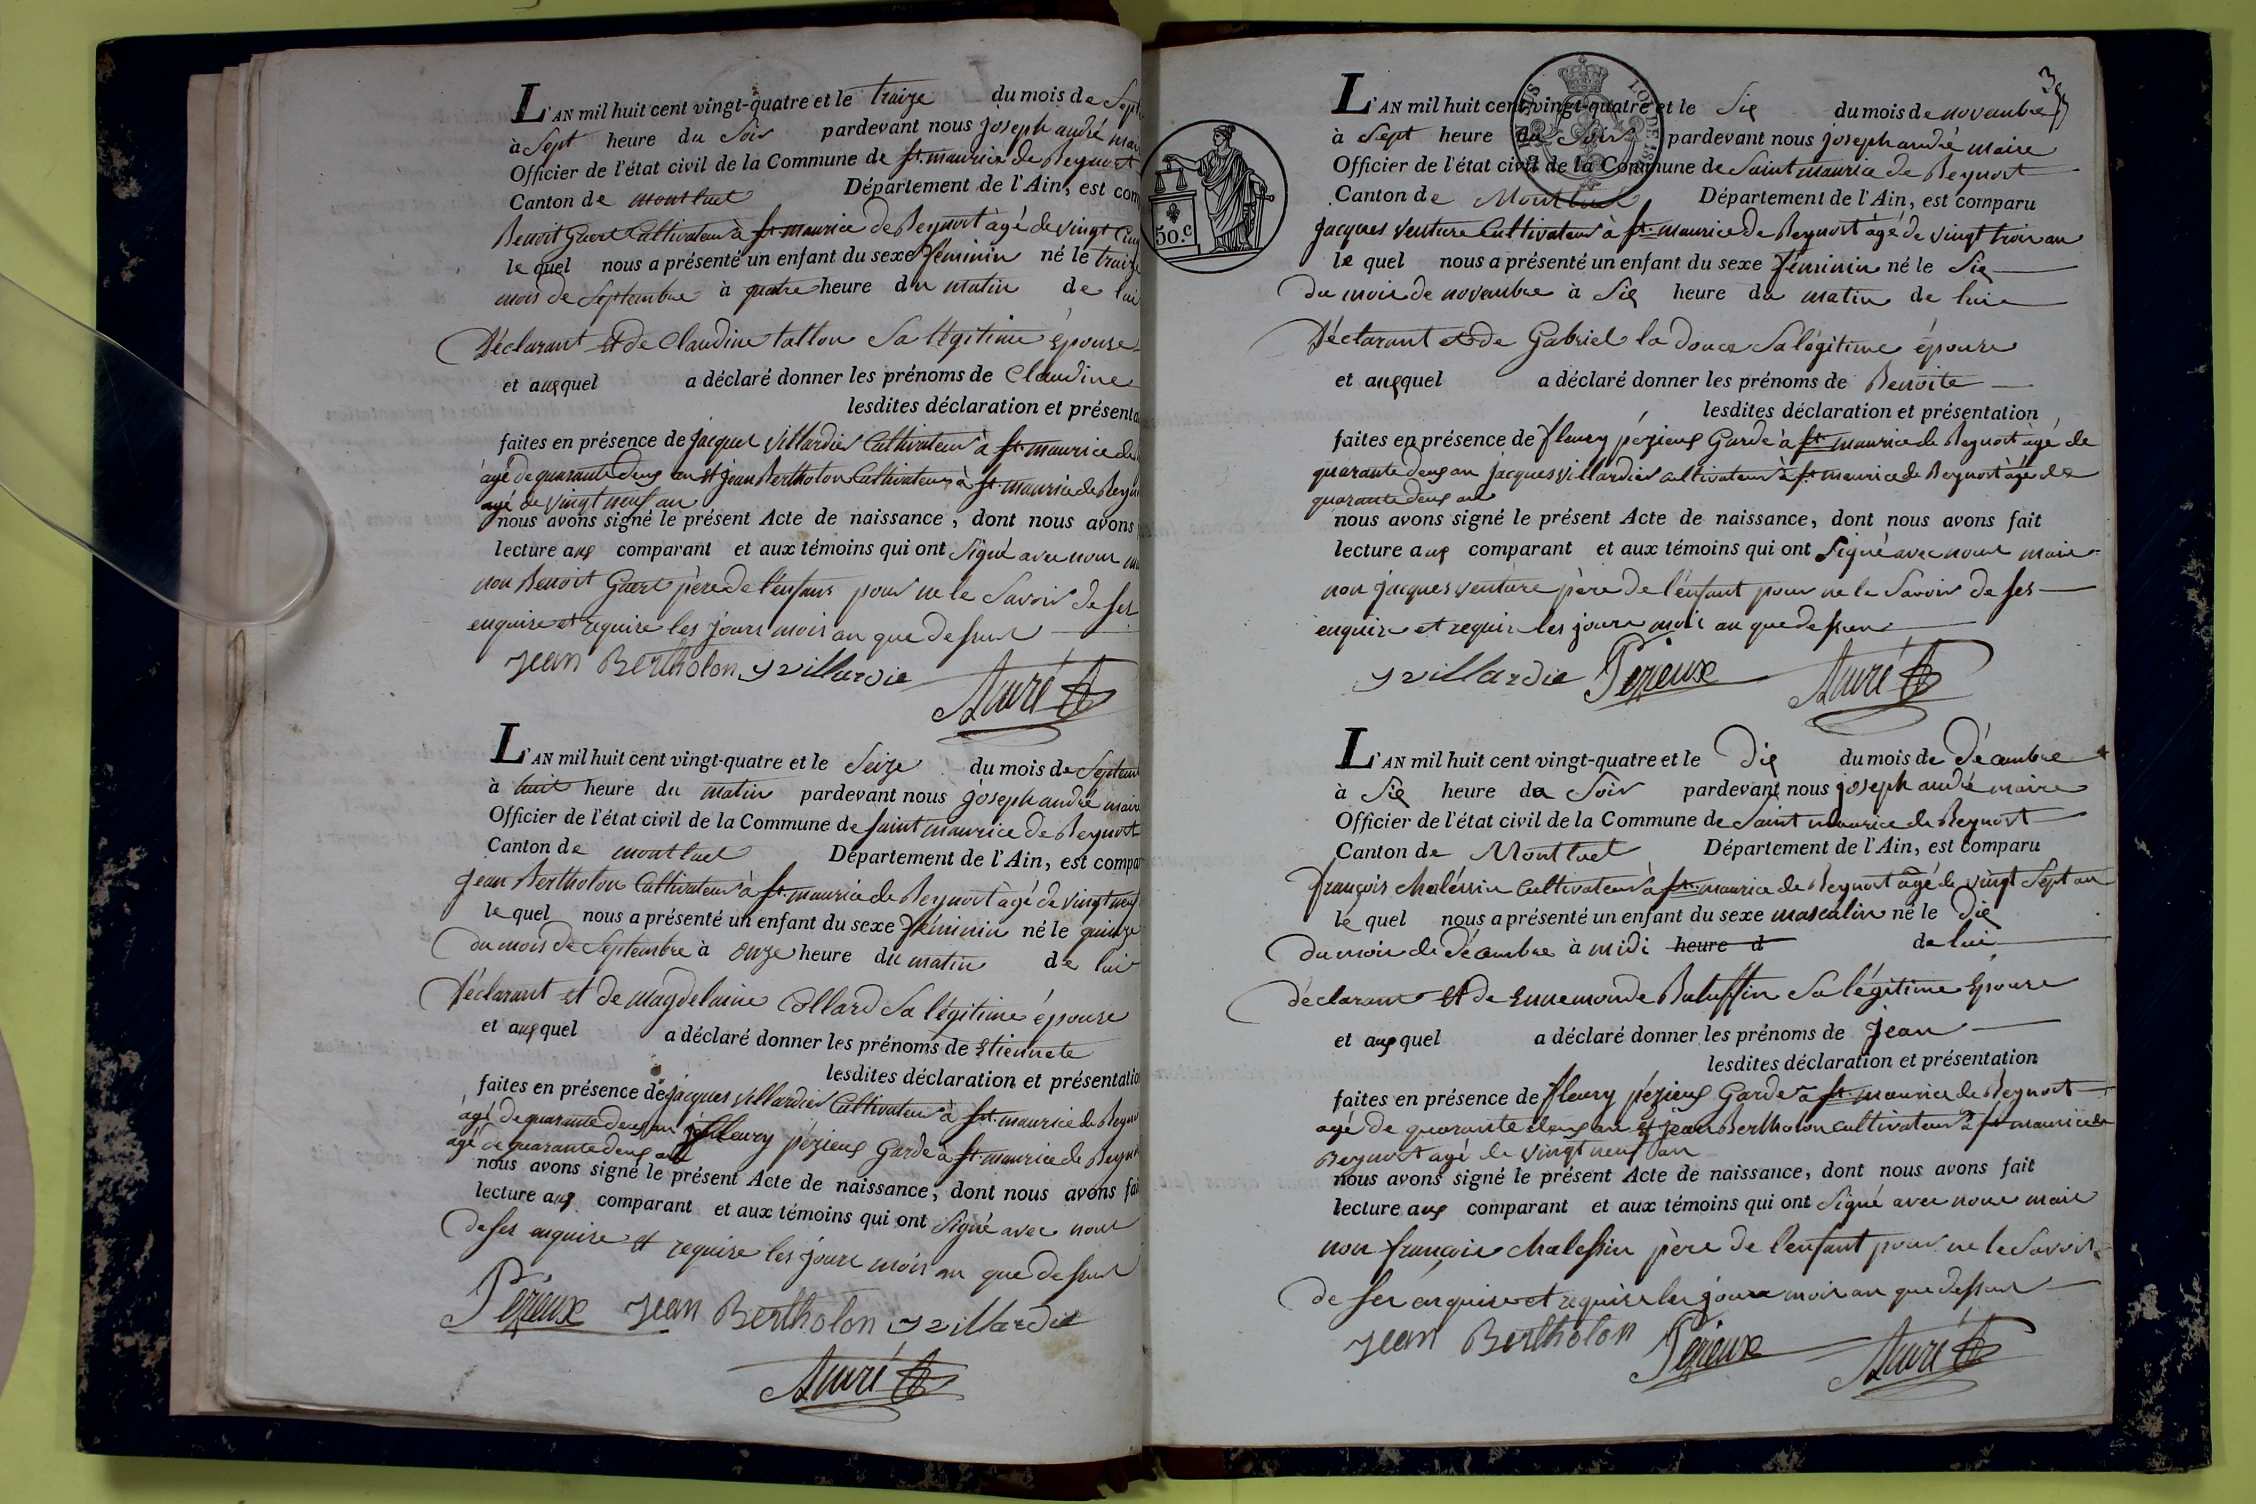 L'AN mil huit cent vingt-quatre et le traize du mois de Sept
à Sept heure du Soir pardevant nous joseph andré mai
Officier de l'état civil de la Commune de st. maurice de Beynost
Canton de montluel Département de l'Ain, est com
Benoit Cultivateur à st maurice de Beynost âgé de vingt Cinq
le quel nous a présenté un enfant du sexe féminin né le traize
mois de Septembre à quatre heure du matin de lui
Déclarant et de Claudine tallon Sa légitime épouse
et auxquel a déclaré donner les prénoms de Claudine
lesdites déclaration et présenta
faites en présence de jacques villardier Cultivateur à st maurice de
âgé de quarante deux an et jean Bertholon Cultivateur à st maurice de Beyn
agé de vingt neuf an
nous avons signé le présent Acte de naissance, dont nous avons
lecture aux comparant et aux témoins qui ont Signé avec nous
non Benoit père de l'enfant pour ne le Savoir de ses
enquire et require les jours mois an que dessus
jean Bertholon jvillardie André
L'AN mil huit cent vingt-quatre et le Seize du mois de Septem
à huit heure du matin pardevant nous joseph andré maire
Officier de l'état civil de la Commune de Saint maurice de Beynost
Canton de montluel Département de l'Ain, est compa
jean Bertholon Cultivateur à st maurice de Beynost agé de vingt neuf
le quel nous a présenté un enfant du sexe féminin né le quinze
du mois de Septembre à onze heure du matin de lui
Déclarant et de magdelaine Collard Sa légitime épouse
et auxquel a déclaré donner les prénoms de Etiennete
lesdites déclaration et présentatio
faites en présence de jacques villardier Cultivateur à st maurice de Beyno
âgé de quarante deux an fleury pézieux Garde à st maurice de Beyn
agé de quarante deux an
nous avons signé le présent Acte de naissance, dont nous avons fai
lecture aux comparant et aux témoins qui ont Signé avec nous
de ses enquire et require les jours mois an que dessus
Pézieux jean Bertholon jvillardie
André
3
L'AN mil huit cent vingt-quatre et le Six du mois de novembre
à Sept heure du Soir pardevant nous joseph andré maire
Officier de l'état civil de la Commune de Saint maurice de Beynost
Canton de Montluel Département de l'Ain, est comparu
50.c
jacques venture Cultivateur à st. maurice de Beynost âgé de vingt trois an
le quel nous a présenté un enfant du sexe féminin né le Six
du mois de novembre à Six heure du matin de lui
Déclarant et de Gabriel la douce Sa légitime épouse
et auxquel a déclaré donner les prénoms de Benoite
lesdites déclaration et présentation
faites en présence de fleury pézieux Garde à st maurice de Beynost âgé de
quarante deux an jacques villardier cultivateur à st maurice de Beynost âgé de
quarante deux an
nous avons signé le présent Acte de naissance, dont nous avons fait
lecture aux comparant et aux témoins qui ont Signé avec nous maire
non jacques venture père de l'enfant pour ne le Savoir de ses
enquire et require les jours mois an que dessus
jvillardie Pézieux André
L'AN mil huit cent vingt-quatre et le dix du mois de décembre
à Six heure du Soir pardevant nous joseph andré maire
Officier de l'état civil de la Commune de Saint maurice de Beynost
Canton de Montluel Département de l'Ain, est comparu
françois chalessin Cultivateur à st. maurice de Beynost âgé de vingt Sept an
le quel nous a présenté un enfant du sexe masculin né le dix
du mois de décembre à midi heure d de lui
déclarant et de Ennemonde Sa légitime épouse
et auxquel a déclaré donner les prénoms de jean
lesdites déclaration et présentation
faites en présence de fleury pézieux Garde à st maurice de Beynost
agé de quarante deux an et jean Bertholon cultivateur à st maurice de
Beynost agé de vingt neuf an
nous avons signé le présent Acte de naissance, dont nous avons fait
lecture aux comparant et aux témoins qui ont Signé avec nous maire
non françois chalessin père de l'enfant pour ne le Savoir
de ses enquire et require les jours mois an que dessus
jean Bertholon Pézieux André